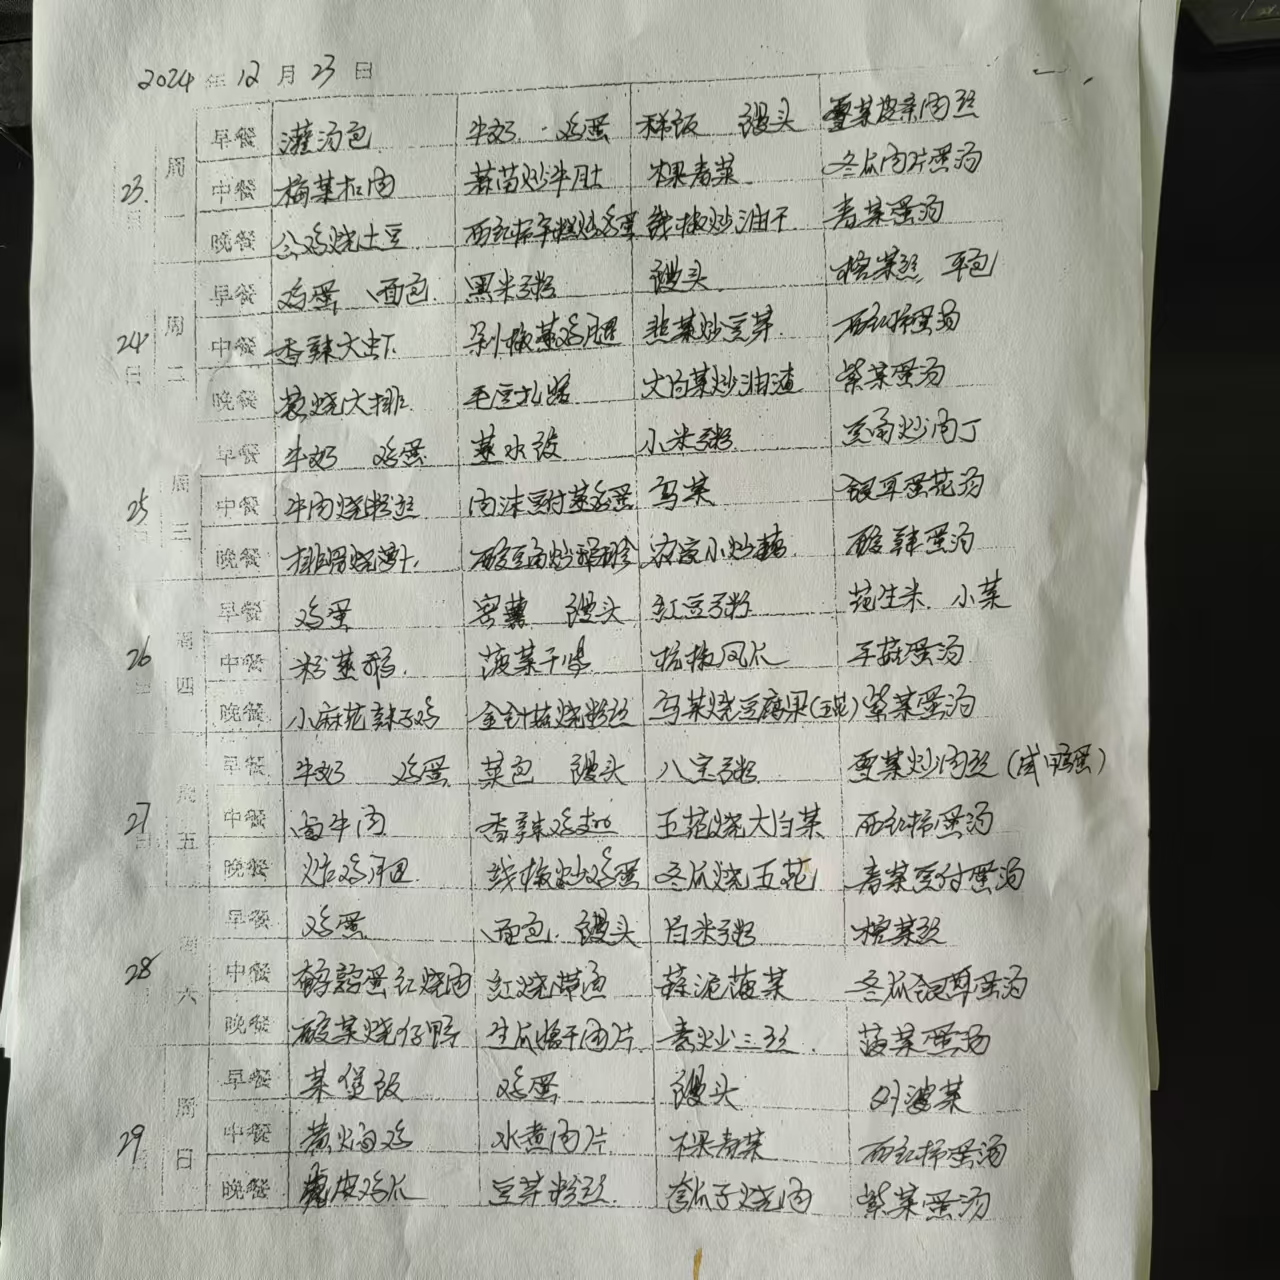 2024年12月23日
早餐 灌汤包 牛奶 鸡蛋 稀饭 馒头 雪菜 肉丝
23日 周一 中餐 梅菜扣肉 蒜苗炒牛肚 棵青菜 冬瓜肉片蛋汤
晚餐 公鸡烧土豆 西红柿 炒鸡蛋 线椒炒油干 青菜蛋汤
早餐 鸡蛋 面包 黑米粥 馒头 榨菜丝
24日 周二 中餐 香辣大虾 剁椒蒸鸡腿 韭菜炒豆芽 西红柿蛋汤
晚餐 葱烧大排 毛豆扎 大白菜炒油渣 紫菜蛋汤
早餐 牛奶 鸡蛋 蒸水饺 小米粥 豆角炒肉丁
25日 周三 中餐 牛肉烧粉丝 肉沫豆付蒸鸡蛋 乌菜 银耳蛋花汤
晚餐 排骨烧萝卜 酸豆角炒 农家小炒藕 酸辣蛋汤
早餐 鸡蛋 馒头 红豆粥 花生米 小菜
26日 周四 中餐 粉蒸 菠菜千张 杭椒凤爪 平菇蛋汤
晚餐 小麻花辣子鸡 金针菇烧粉丝 乌菜烧豆腐果(五花) 紫菜蛋汤
早餐 牛奶 鸡蛋 菜包 馒头 八宝粥 雪菜炒肉丝(咸鸭蛋)
27日 周五 中餐 卤牛肉 香辣鸡 五花烧大白菜 西红柿蛋汤
晚餐 炸鸡腿 线椒炒鸡蛋 冬瓜烧五花 青菜豆付蛋汤
早餐 鸡蛋 面包 馒头 白米粥 榨菜丝
28日 周六 中餐 鹌鹑蛋红烧肉 红烧带鱼 蒜泥菠菜 冬瓜银耳蛋汤
晚餐 酸菜烧仔鸭 生瓜 肉片 素炒三丝 菠菜蛋汤
早餐 菜煲饭 鸡蛋 馒头
29日 周日 中餐 黄焖鸡 水煮肉片 棵青菜 西红柿蛋汤
晚餐 虎皮鸡爪 豆芽粉丝 瓜子烧肉 紫菜蛋汤